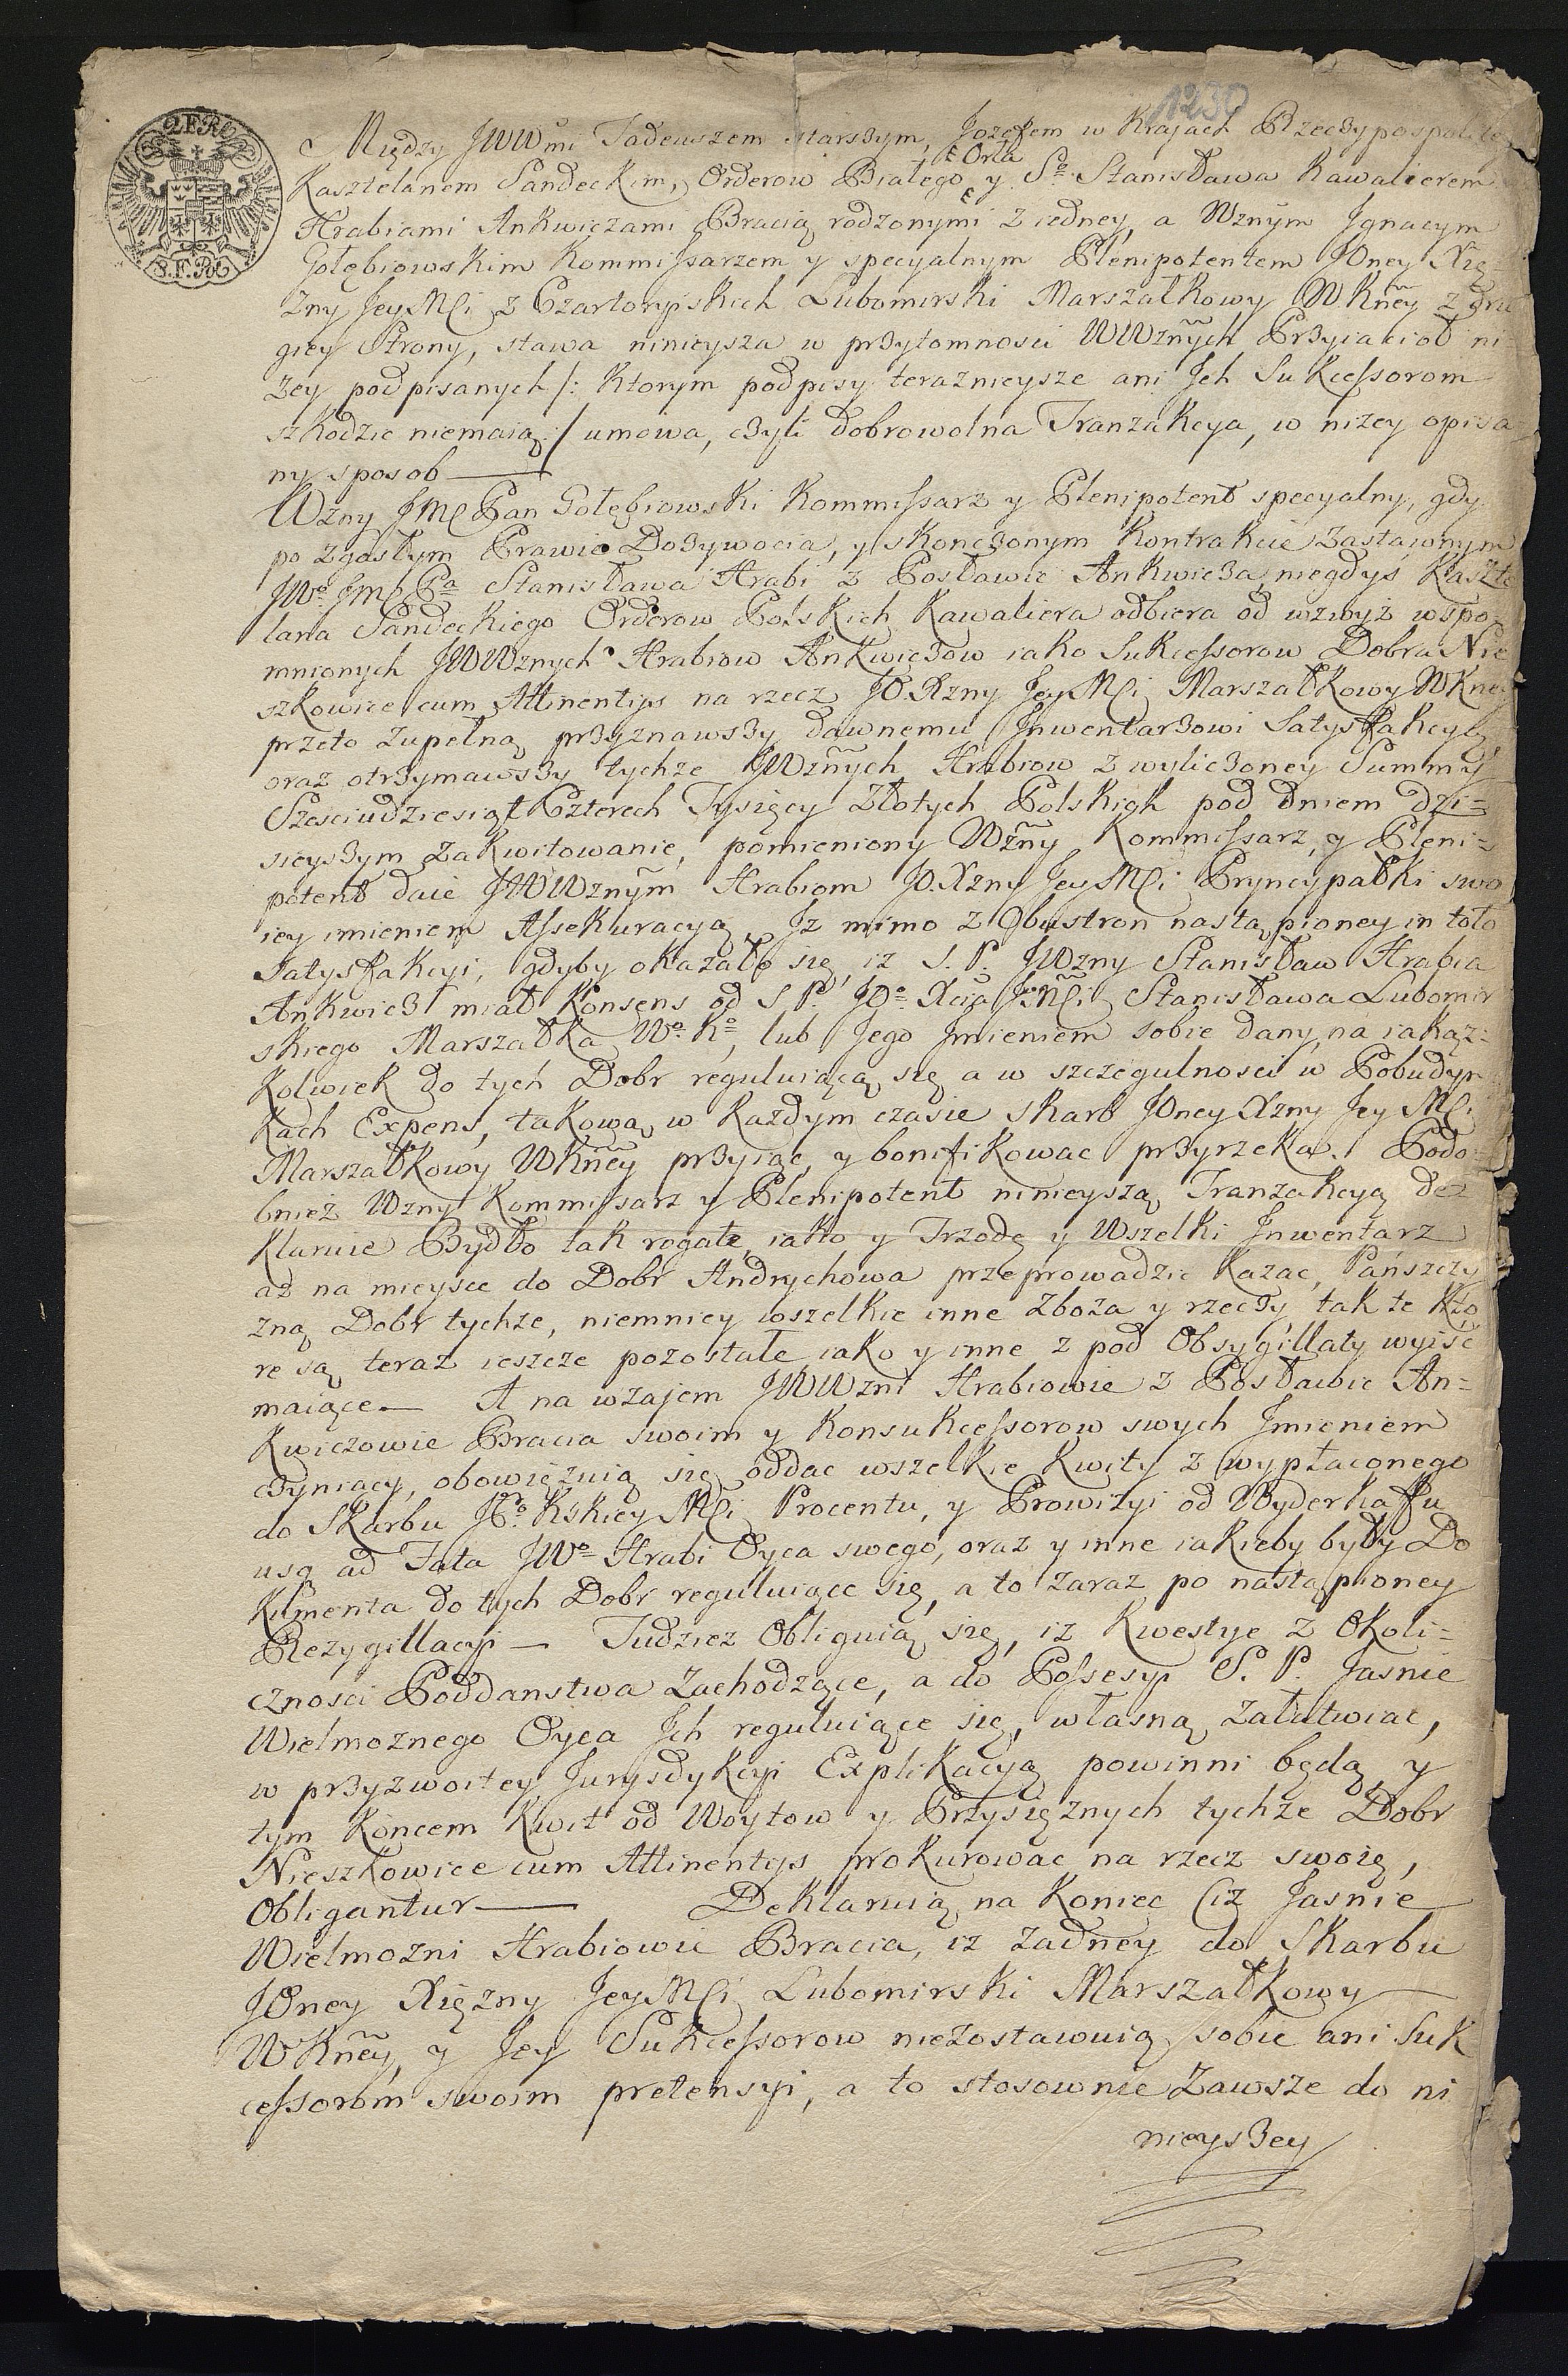 1230
2.F.R.
8.F.R.
Między JWWmi Tadeuszem starszym, Jozefem w Krajach Rzeczypospolitey
Orła
Kasztelanem Sandeckim, Orderow Białego y Sº Stanisława Kawalerem
Hrabiami Ankwiczami Bracią rodzonymi z iedney, a Wznym Jgnacym
Gołębiowskim Kommissarzem y specyalnym Plenipotentem JOney Xię-
żny JeyMCi z Czartoryiskich Lubomirski Marszałkowy WKney z dru
giey Strony, stawa ninieysza w przytomnosci WWznych Przyiacioł ni-
żey podpisanych /: ktorym podpisy teraznieysze ani Jch Sukcessorom
szkodzic niemaią :/ umowa, czyli dobrowolna Tranzakcya, w niżey opisa
ny sposob
Wzny JMC Pan Gołębiowski Kommissarz y Plenipotent specyalny, gdy
po zgasłym Prawie Dożywocia, y skonczonym Kontrakcie Zastawnym
JWº JMC Pa Stanisława Hrabi z Posławic Ankwicza niegdyś Kaszte
lana Sandeckiego Orderow Polskich Kawaliera odbiera od wzwyż wspo-
mnionych JWWznych Hrabiow Ankwiczow iako Sukcessorow Dobra Nie
szkowice cum Attinentijs na rzecz JO. Xzny JeyMCi Marszałkowy WKney
przeto zupełną przyznawszy dawnemu Jnwentarzowi Satysfakcyą
oraz otrzymawszy tychże JWznych Hrabiow z wyliczoney Summy
Szesciudziesiąt Czterech Tysięcy Złotych Polskich pod dniem dzi=
sieyszym zakwitowanie, pomieniony Wzny Kommissarz, y Pleni=
potent daie JWWznym Hrabiom JO. Xzny JeyMCi Pryncypałki swo
iey imieniem Assekuracyą, Jż mimo z Obustron nastąpioney in toto
Satysfakcyi, gdyby okazało się, iż S. P. JWzny Stanisław Hrabia
Ankwicz miał Konsens od S. P. JOº Xcia JeMCi Stanisława Lubomir
skiego Marszałka Wº Kº, lub Jego Jmieniem sobie dany, na iakąż=
kolwiek do tych Dobr reguluiącą się a w szczegulnosci w Pobudyn
kach Expens, takową w każdym czasie skarb JOney Xzny JeyMCi
Marszałkowy WKney przyiąc, y bonifikowac przyrzeka. Podo-
bnież Wzny Kommissarz y Plenipotent ninieyszą Tranzakcyą de=
klaruie Bydło tak rogate, iako y Trzodę y Wszelki Jnwentarz
aż na mieysce do Dobr Andrychowa przeprowadzic kazac, Pańszczy
zną Dobr tychże, niemniey wszelkie inne Zboża y rzeczy, tak te kto
re są teraz ieszcze pozostałe iako y inne z pod Obsygillaty wyiść
maiące— A na wzajem JWWzni Hrabiowie z Posławic An=
kwiczowie Bracia swoim y Konsukcessorow swych Jmieniem
czyniący, obowięzuią się oddac wszelkie Kwity z wypłaconego
do Skarbu Jº Kskiey MCi Procentu, y Prowizyi od Wyderkaffu
usq ad Fata JWº Hrabi Oyca swego, oraz y inne iakieby były Do
kumenta do tych Dobr reguluiące się, a to zaraz po nastąpioney
Rezygillacyi — Tudzież Obliguią się, iż Kwestye z Okoli=
cznosci Poddanstwa Zachodzące, a do Possesyi S. P. Jasnie
Wielmożnego Oyca Jch reguluiące się, własną załatwiac,
w przyzwoitey Jurysdykcyi Explikacyą powinni będą y
tym Koncem Kwit od Woytow y Przysiężnych tychże Dobr
Nieszkowice cum Attinentijs prokurowac na rzecz swoię,
Obligantur— Deklaruią na Koniec ciż Jasnie
Wielmożni Hrabiowie Bracia, iż żadney do Skarbu
JOney Xiężny JeyMCi Lubomirski Marszałkowy
WKney, y Jey Sukcessorow niezostawuią sobie ani Suk
cessorom swoim pretensyi, a to stosownie Zawsze do ni
nieyszey